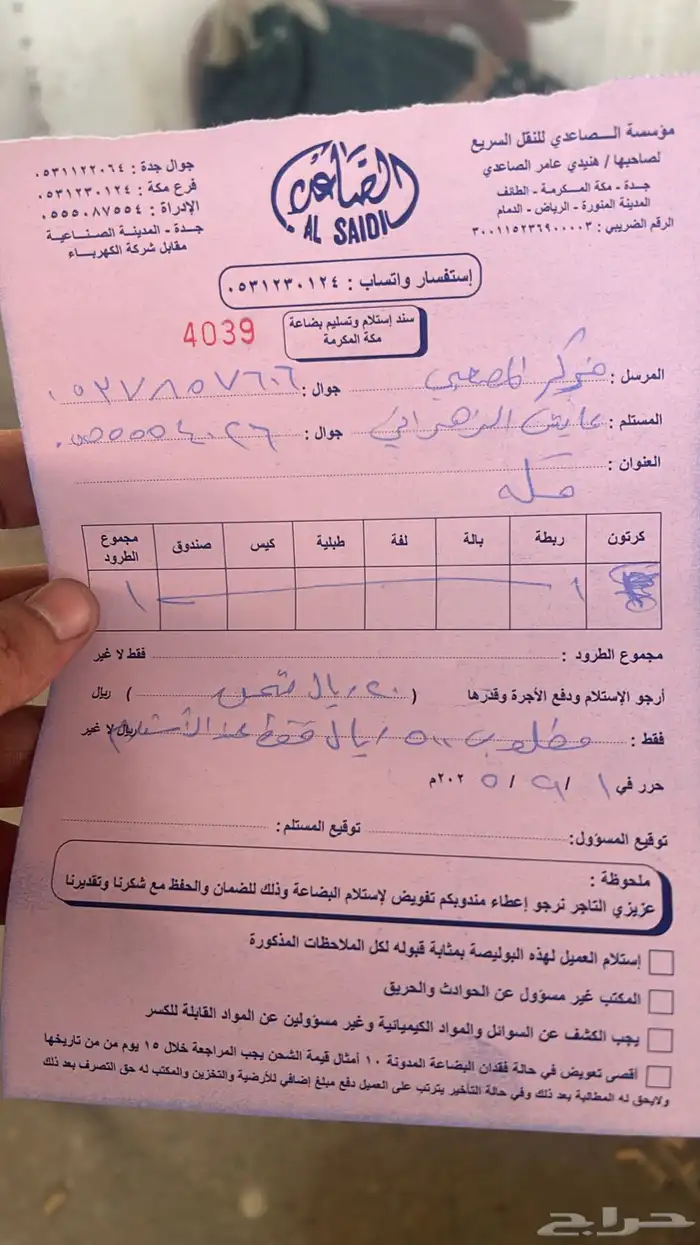 مؤسسة الـصاعدي للنقل السريع
لصاحبها / هنيدي عامر الصاعدي
جدة - مكة المكرمة - الطائف
المدينة المنورة - الرياض - الدمام
الرقم الضريبي : ٣٠٠١١٥٢٣٦٩٠٠٠٠٣
الصاعدي
AL SAIDI
جوال جدة : ٠٥٣١١٢٢٠٦٤
فرع مكة : ٠٥٣١٢٣٠١٢٤
الإدراة : ٠٥٥٥٠٨٧٥٥٤
جدة - المدينة الصناعية
مقابل شركة الكهرباء
إستفسار واتساب : ٠٥٣١٢٣٠١٢٤
سند إستلام وتسليم بضاعة
مكة المكرمة
4039
المرسل : جوال : ٠٥٣٧٨٥٧٦٠٦
المستلم : عايش الزهراني جوال : ٠٥٥٥٥٥٤٠٢٦
العنوان : مكه
كرتون ربطة بالة لفة طبلية كيس صندوق مجموع الطرود
١ ١
مجموع الطرود : فقط لا غير
أرجو الإستلام ودفع الأجرة وقدرها ( ٢٠ ريال ) ريال
فقط : مطلوب ٥٠٠ ريال فقط عند الأستلام ريال لا غير
حرر في ١ / ٩ / ٢٠٢٥م
توقيع المسؤول: توقيع المستلم :
ملحوظة :
عزيزي التاجر نرجو إعطاء مندوبكم تفويض لإستلام البضاعة وذلك للضمان والحفظ مع شكرنا وتقديرنا
إستلام العميل لهذه البوليصة بمثابة قبوله لكل الملاحظات المذكورة
المكتب غير مسؤول عن الحوادث والحريق
يجب الكشف عن السوائل والمواد الكيميائية وغير مسؤولين عن المواد القابلة للكسر
أقصى تعويض في حالة فقدان البضاعة المدونة ١٠ أمثال قيمة الشحن يجب المراجعة خلال ١٥ يوم من من تاريخها
ولايحق له المطالبة بعد ذلك وفي حالة التأخير يترتب على العميل دفع مبلغ إضافي للأرضية والتخزين والمكتب له حق التصرف بعد ذلك
حراج